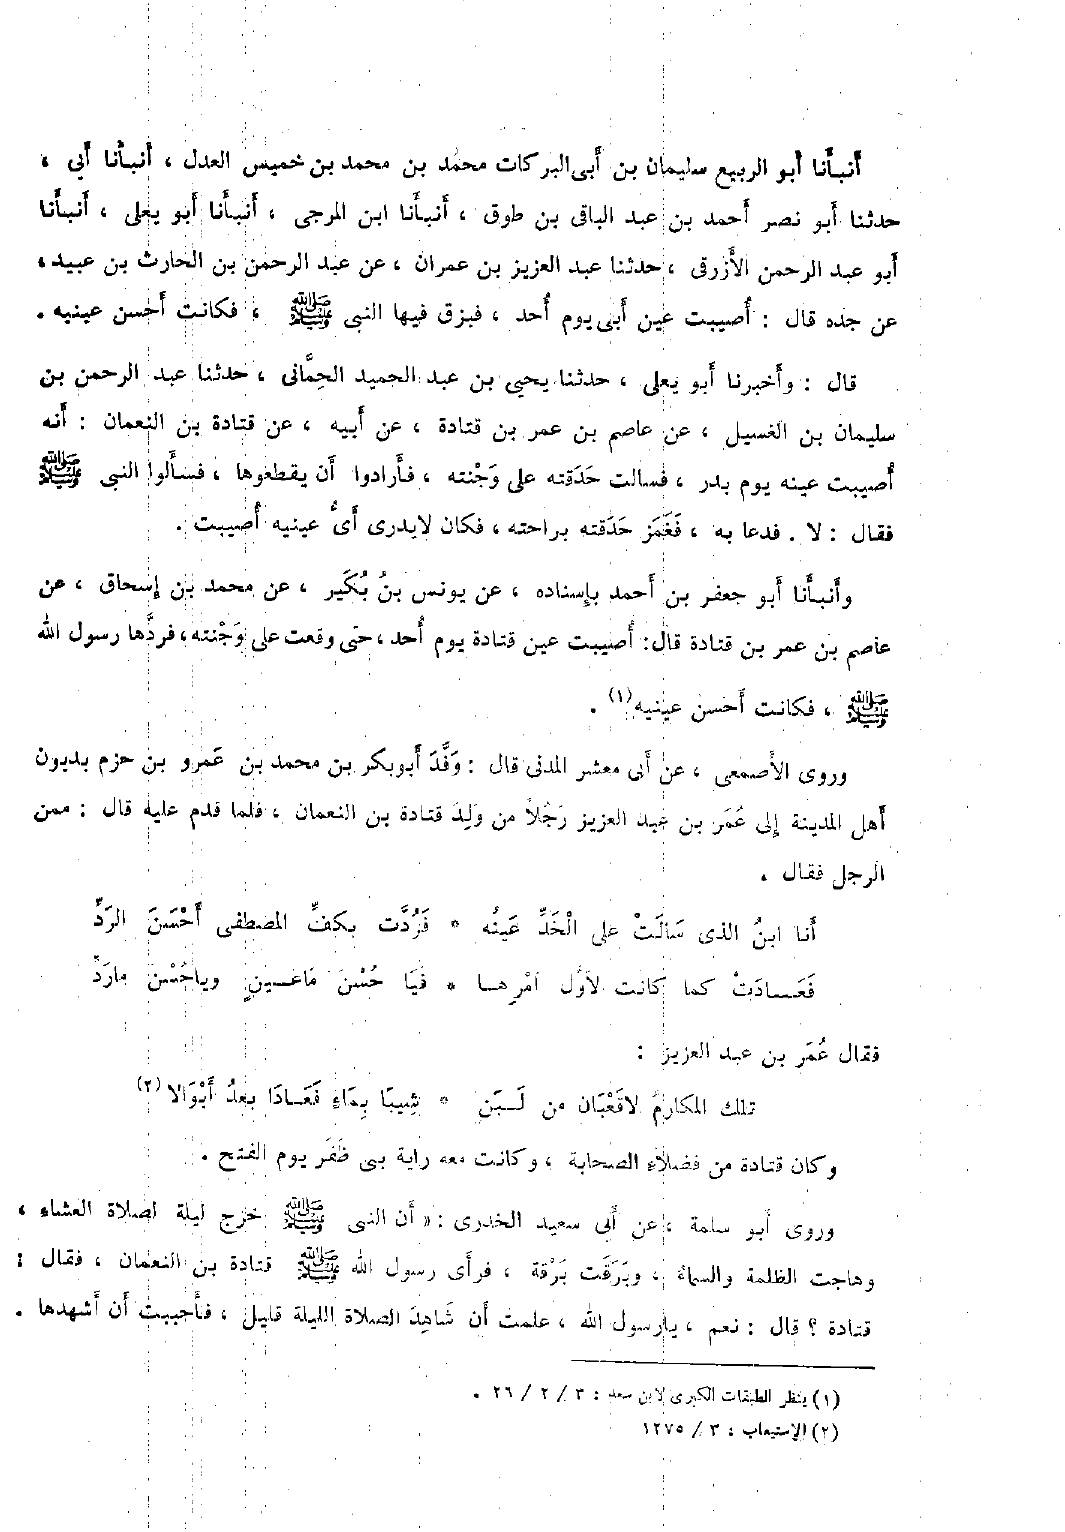 أَنبأَنا أَبو الربيع سليمان بن أَبى البركات محمد بن محمد بن خميس العدل ، أَنبأَنا أَبي ،
حدثنا أَبو نصر أَحمد بن عبد الباقى بن طوق ، أَنبأَنا ابن المرجى ، أَنبأَنا أَبو يعلى ، أَنبأَنا
أَبو عبد الرحمن الأَزرقى ، حدثنا عبد العزيز بن عمران ، عن عبد الرحمن بن الحارث بن عبيد ،
عن جده قال : أُصيبت عين أَبى يوم أُحد ، فبزق فيها النبى ﷺ ، فكانت أَحسن عينيه .
قال : وأَخبرنا أَبو يعلى ، حدثنا يحيى بن عبد الحميد الحِمَّانى ، حدثنا عبد الرحمن بن
سليمان بن الغسيل ، عن عاصم بن عمر بن قتادة ، عن أَبيه ، عن قتادة بن النعمان : أَنه
أُصيبت عينه يوم بدر ، فسالت حَدَقته على وَجْنته ، فأَرادوا أَن يقطعوها ، فسأَلوا النبى ﷺ
فقال : لا . فدعا به ، فَغَمَز حَدَقته براحته ، فكان لايدرى أَىُّ عينيه أُصيبت .
وأَنبأَنا أَبو جعفر بن أَحمد بإِسناده ، عن يونس بنُ بُكَير ، عن محمد بن إِسحاق ، عن
عاصم بن عمر بن قتادة قال: أُصيبت عين قتادة يوم أُحد ، حتى وقعت على وَجْنته، فردَّها رسول الله
ﷺ ، فكانت أَحسن عينيه(١) .
وروى الأَصمعى ، عن أَبى معشر المدنى قال : وَفَّدَ أَبوبكر بن محمد بن عَمرو بن حزم بديون
أَهل المدينة إِلى عُمَر بن عبد العزيز رَجُلاً من وَلِدَ قتادة بن النعمان ، فلما قدم عليه قال : ممن
الرجل فقال .
أَنا ابنُ الذى سَالَتْ على الْخَدِّ عَينُه * فَرُدَّت بكفِّ المصطفى أَحْسَنَ الرَدِّ
فَعَـادَتْ كما كانت لأَوَّل أَمْرِهـا * فيَا حُسْنَ مَاعَـينٍ وياحُسْن مارَدِّ
فقال عُمَر بن عبد العزيز :
تلك المكارمُ لاقَعْبَان من لَـبَن * شِيبَا بِمَاءٍ فَعَـادَا بعدُ أَبْوَالا(٢)
وكان قتادة من فضلاَءِ الصحابة ، وكانت معه راية بنى ظَفَر يوم الفتح .
وروى أَبو سلمة ، عن أَبى سعيد الخدرى : « أَن النبى ﷺ خرج ليلة لصلاة العشاء ،
وهاجت الظلمة والسماءُ ، وبَرَقَت بَرْقة ، فرأَى رسول الله ﷺ قتادة بن النعمان ، فقال :
قتادة ؟ قال : نعم ، يارسول الله ، علمت أَن شَاهِدَ الصلاة الليلة قليل ، فأَحببت أَن أَشهدها .
(١) ينظر الطبقات الكبرى لابن سعد : ٣ / ٢ / ٢٦ .
(٢) الإستيعاب : ٣ / ١٢٧٥